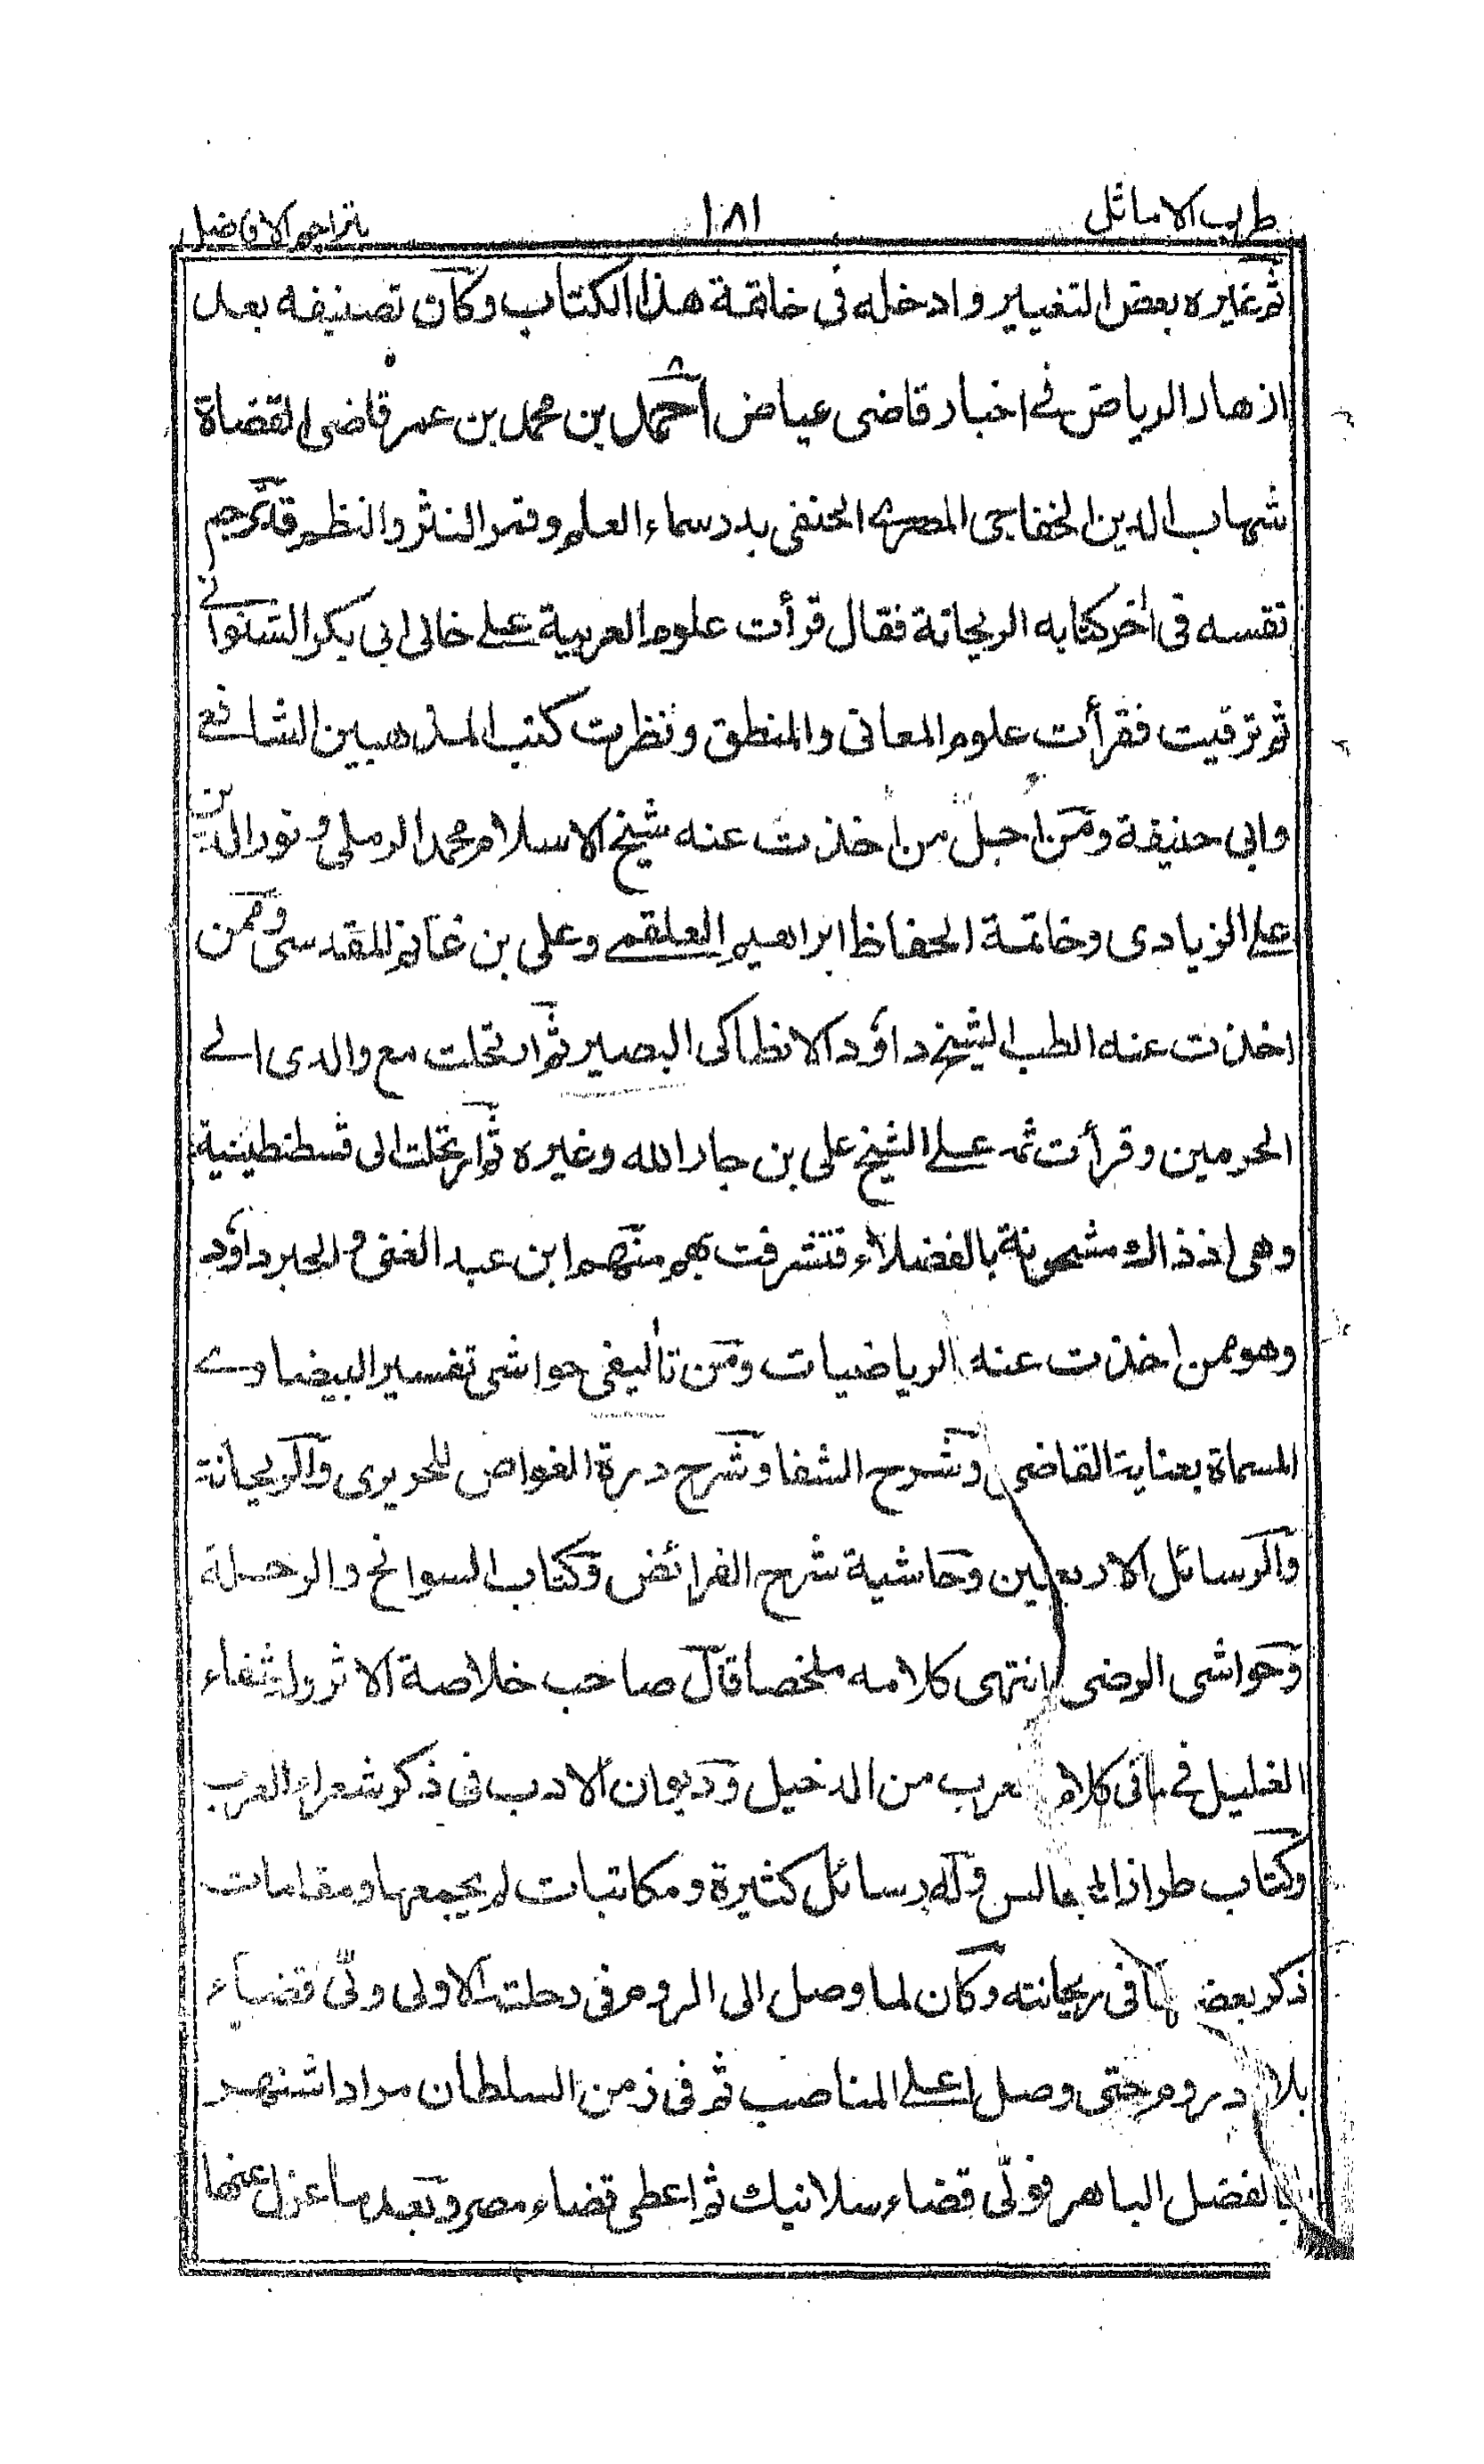 طرب الاماثل ١٨١ بتراجم الافاضل
ثم غيره بعض التغيير وادخله فى خاتمة هذا الكتاب وكان تصنيفه بعد
ازهار الرياض فے اخبار قاضى عياض احمد بن محمد بن عمر قاضى القضاة
شهاب الدين الخفاجى المصرى الحنفى بدر سماء العلم وقمر النثر والنظم قد ترجم
نفسه فى اخر كتابه الريحانة فقال قرأت علوم العربية علے خالى ابى بكر الشنوانے
ثم ترقيت فقرأت علوم المعانى والمنطق ونظرت كتب المذهبين الشافعے
وابى حنيفة ومن اجل من اخذت عنه شيخ الاسلام محمد الرملى و نور الدين
علے الزيادى وخاتمة الحفاظ ابراهيم العلقمے وعلى بن غانم المقدسى وممن
اخذت عنه الطب الشيخ داؤد الانطاكى البصير ثم ارتحلت مع والدى الے
الحرمين وقرأت ثمه علے الشيخ على بن جار الله وغيره ثم ارتحلت الى قسطنطينية
وهى اذ ذاك مشحونة بالفضلاء فتشرفت بهم منهم ابن عبد الغنى و الحبر داؤد
وهو ممن اخذت عنه الرياضيات ومن تأليفى حواشى تفسير البيضاوے
المسماة بعناية القاضى وشرح الشفا وشرح درة الغواص للحريرى والريحانة
والرسائل الاربعين وحاشية شرح الفرائض وكتاب السوانح والرحلة
وحواشى الرضى انتهى كلامه ملخصا قال صاحب خلاصة الاثر وله شفاء
الغليل فے ما فى كلام العرب من الدخيل وديوان الادب فى ذكر شعراء العرب
وكتاب طراز المجالس وله رسائل كثيرة ومكاتبات لم يجمعها ومقامات
ذكر بعضها فى ريحانته وكان لما وصل الى الروم فى رحلته الاولى ولى قضاء
بلاد روم حتى وصل اعلے المناصب ثم فى زمن السلطان مراد اشتهر
بالفضل الباهر فولى قضاء سلانيك ثم اعطى قضاء مصر وبعد ما عزل عنها